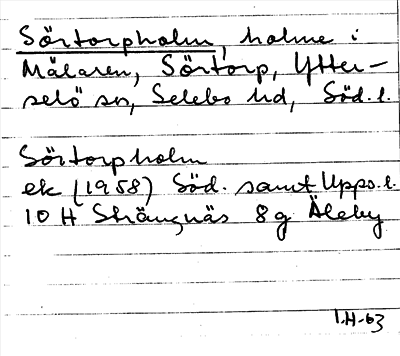 Sörtorpholm, holme i
Mälaren, Sörtorp, Ytter-
selö sn, Selebo hd, Söd. l.
Sörtorpholm
ek (1958) Söd. samt Upps. l.
10 H Strängnäs 8g Åleby
I.H-63